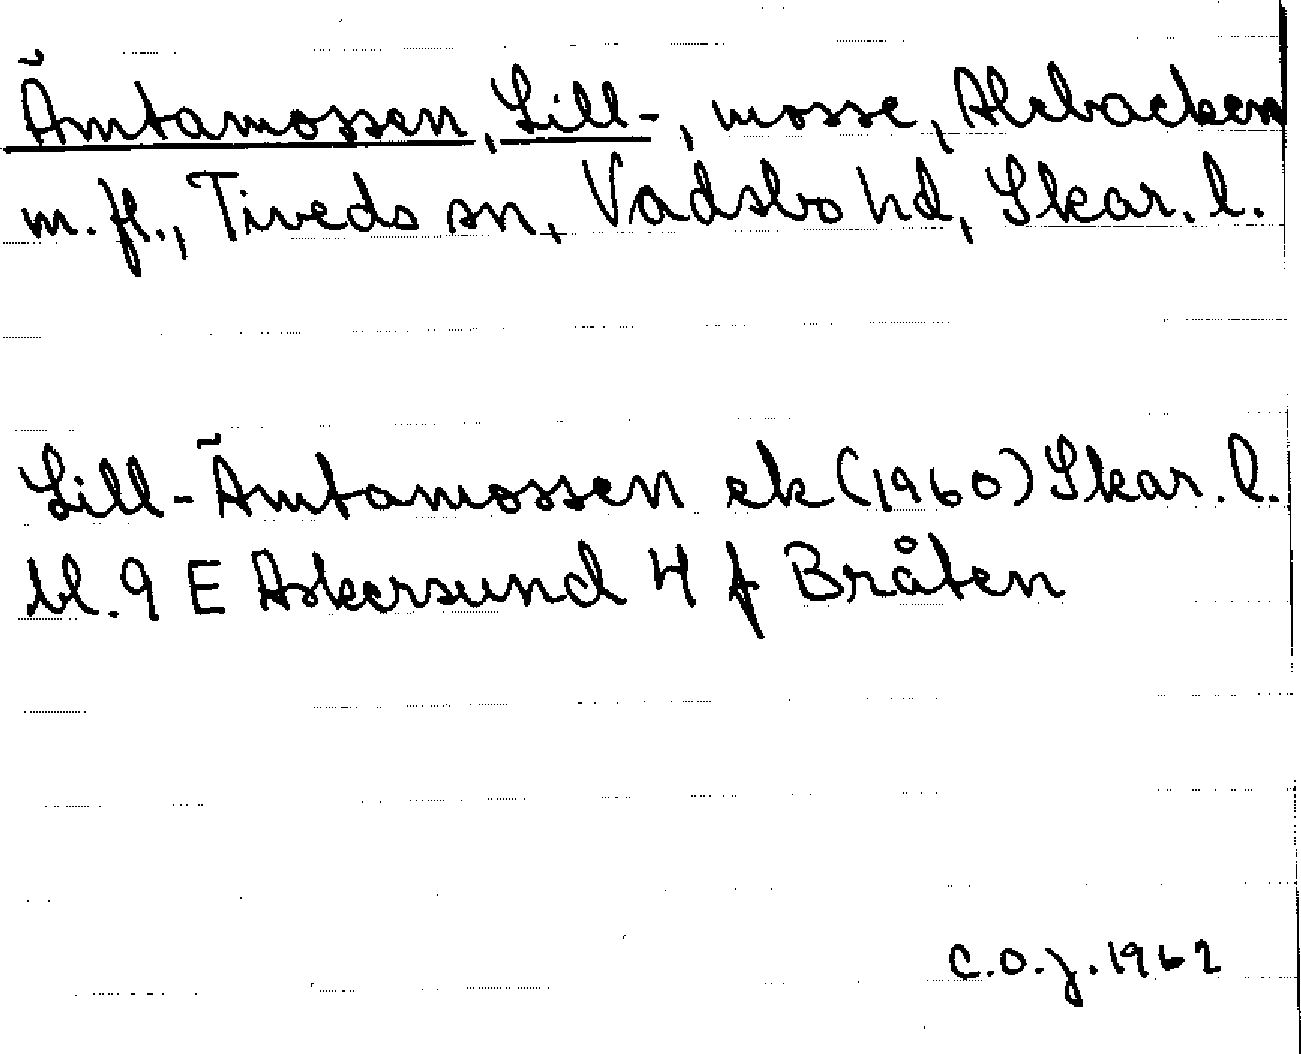 Ämtamossen, Lill-, mosse, Alebacken
m.fl., Tiveds sn, Vadsbo hd, Skar. l.
Lill-Ämtamossen ek (1960) Skar. l.
bl. 9 E Askersund 4 f Bråten
C.O.J. 1962